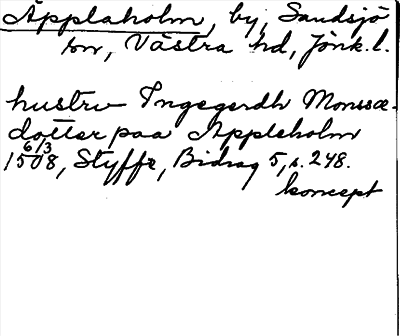 Äpplaholm, by, Sandsjö
sn, Västra hd, Jönk. l.
hustrv Ingegerdh Monssæ-
dotter paa Äppleholm
6/3 1508, Styffe, Bidrag 5, s. 248.
koncept